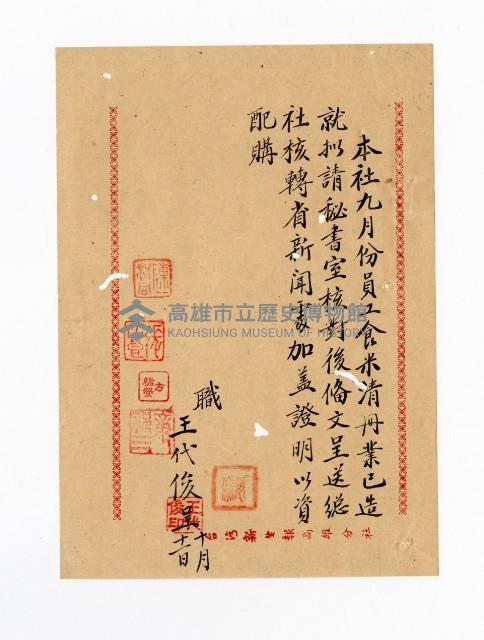 本社九月份員工食米清冊業已造
就拟請秘書室核對後俻文呈送總
社核轉省新聞處加盖證明以資
配購
職
王代俊呈
十月
十二日
台灣新生報高雄分社
高雄市立歷史博物館
KAOHSIUNG MUSEUM OF HISTORY